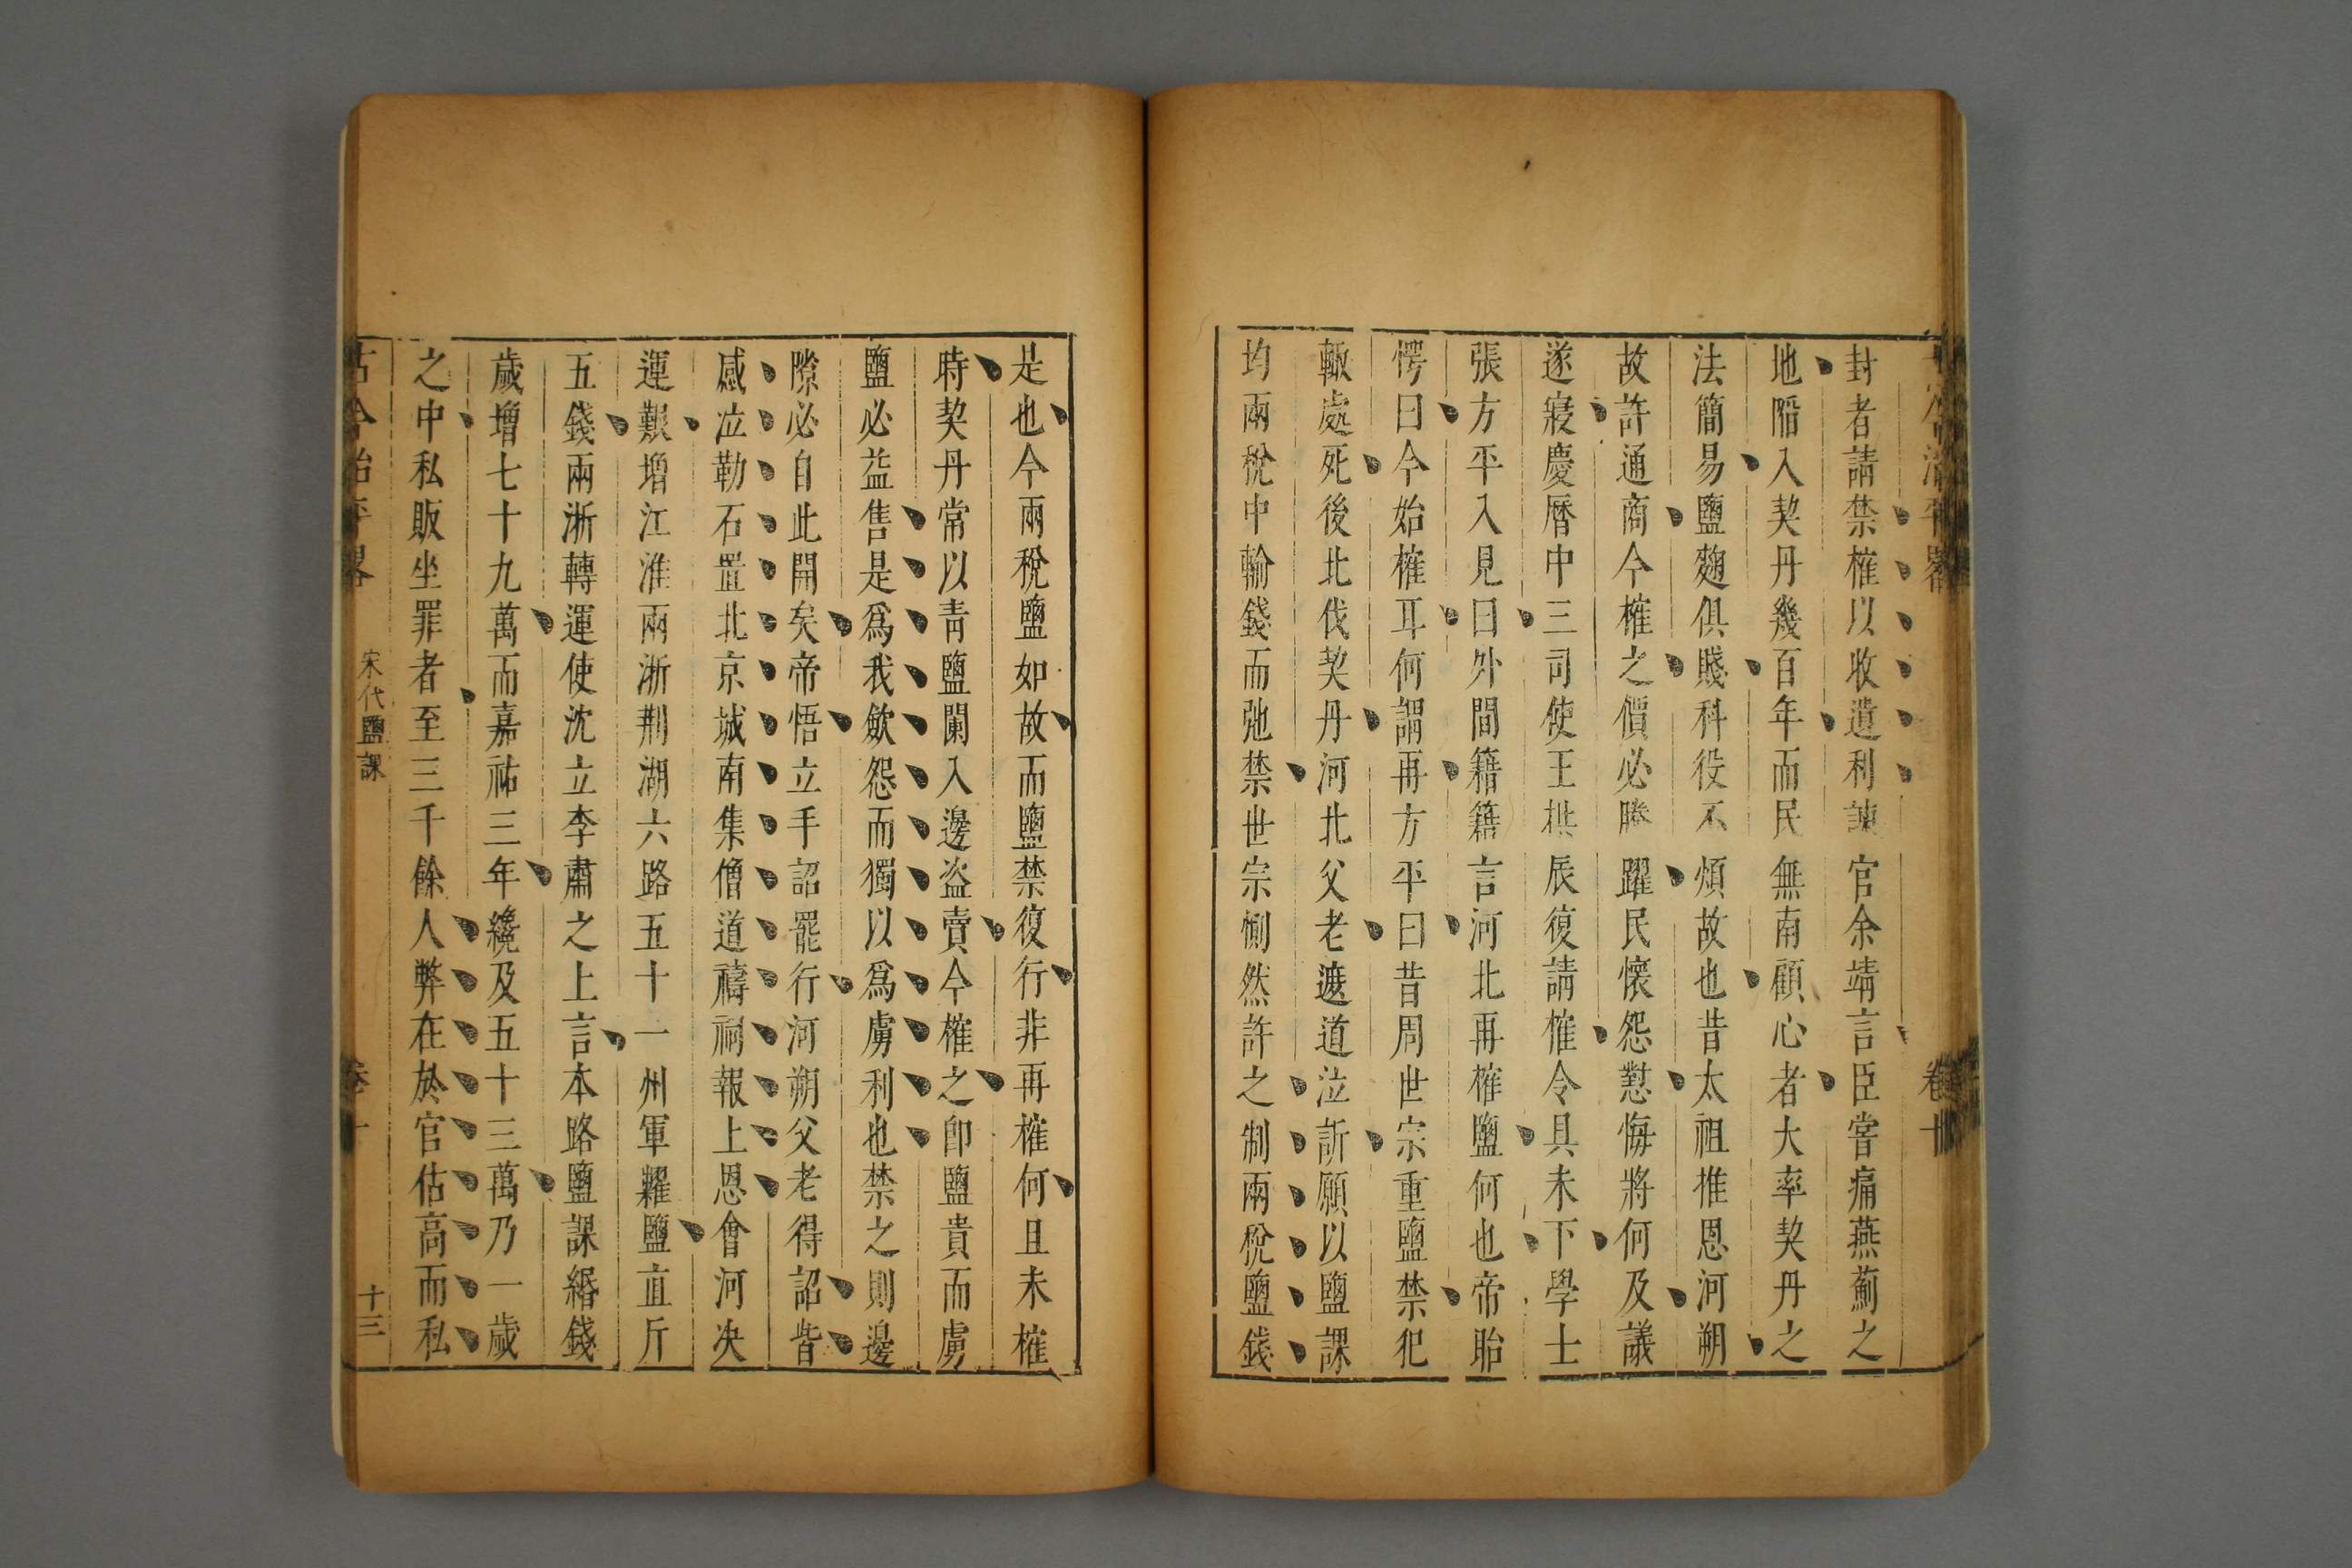 封者請禁榷以收遺利諫官余靖言臣嘗痛燕薊之
地陷入契丹幾百年而民無南顧心者大率契丹之
法簡易鹽麴俱賤科役不煩故也昔太祖推恩河朔
故許通商今榷之價必騰躍民懷怨懟悔將何及議
遂寢慶曆中三司使王拱辰復請榷令具未下學士
張方平入見曰外間籍籍言河北再榷鹽何也帝眙
愕曰今始榷耳何謂再方平曰昔周世宗重鹽禁犯
輙處死後北伐契丹河北父老遮道泣訴願以鹽課
均兩稅中輸錢而弛禁世宗惻然許之制兩稅鹽錢
卷十
是也今兩稅鹽如故而鹽禁復行非再榷何且未榷
時契丹常以靑鹽闌入邊盜賣今榷之卽鹽貴而虜
鹽必益售是爲我歛怨而獨以爲虜利也禁之則邊
隙必自此開矣帝悟立手詔罷行河朔父老得詔皆
感泣勒石置北京城南集僧道禱祠報上恩會河决
運艱增江淮兩浙荆湖六路五十一州軍糶鹽直斤
五錢兩浙轉運使沈立李肅之上言本路鹽課緡錢
歲增七十九萬而嘉祐三年纔及五十三萬乃一歲
之中私販坐罪者至三千餘人弊在於官估高而私
古今治平畧 宋代鹽課 卷十 十三